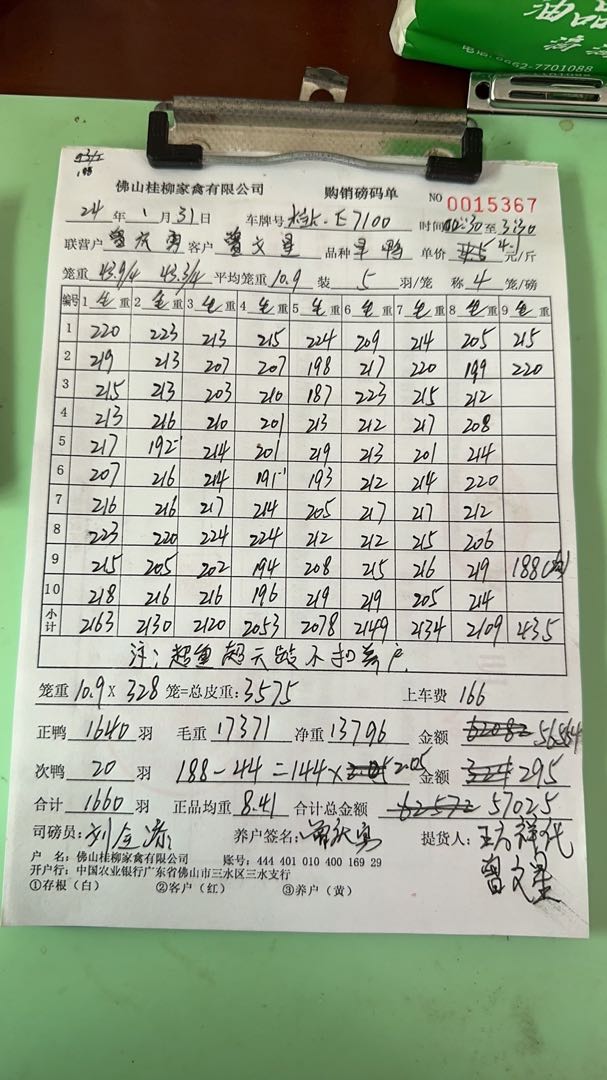 电话:0662-7701088
佛山桂柳家禽有限公司 购销磅码单 NO 0015367
24年1月31日 车牌号 桂K·E7100 时间 02:30至3:30
联营户 曾庆勇 客户 曾文星 品种 旱鸭 单价 4.1元/斤
笼重 43.9/4 43.3/4 平均笼重10.9 装 5 羽/笼 称 4 笼/磅
编号 1 毛重 2 毛重 3 毛重 4 毛重 5 毛重 6 毛重 7 毛重 8 毛重 9 毛重
1 220 223 213 215 224 209 214 205 215
2 219 213 207 207 198 217 220 199 220
3 215 213 203 210 187 223 215 212
4 213 216 210 201 213 212 217 208
5 217 192 214 201 219 213 201 214
6 207 216 214 191 193 212 214 220
7 216 216 217 214 205 217 217 212
8 223 220 224 224 212 212 215 206
9 215 205 202 194 208 215 216 219 188
10 218 216 216 196 219 219 205 214
小计 2163 2130 2120 2053 2078 2149 2134 2109 435
注:超重超天龄不扣养户
笼重 10.9 X 328 笼=总皮重:3575 上车费 166
正鸭 1640 羽 毛重 17371 净重 13796 金额 62082 56564
次鸭 20 羽 188-44=144× 2.05 金额 295
合计 1660 羽 正品均重 8.41 合计总金额 62572 57025
司磅员: 养户签名:曾庆勇 提货人:
曾文星
户 名:佛山桂柳家禽有限公司 账号:444 401 010 400 169 29
开户行:中国农业银行广东省佛山市三水区三水支行
①存根(白) ②客户(红) ③养户(黄)